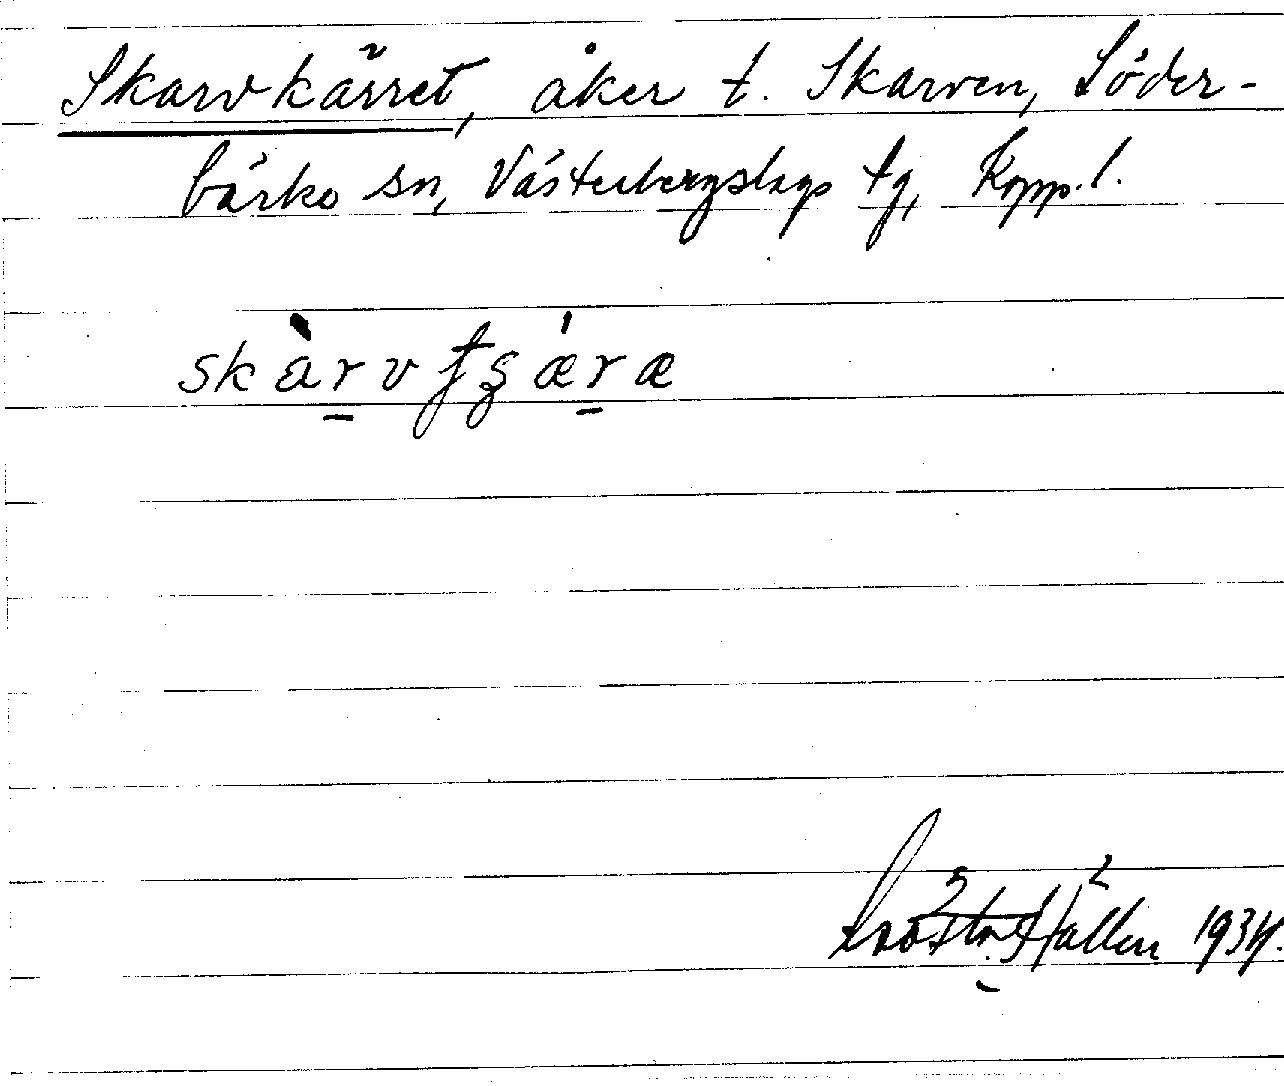 Skarvkärret, åker t. Skarven, Söder-
bärke sn, Västerbergslags tg, Kopp. l.
skàrvʄʂǽræ
1934.